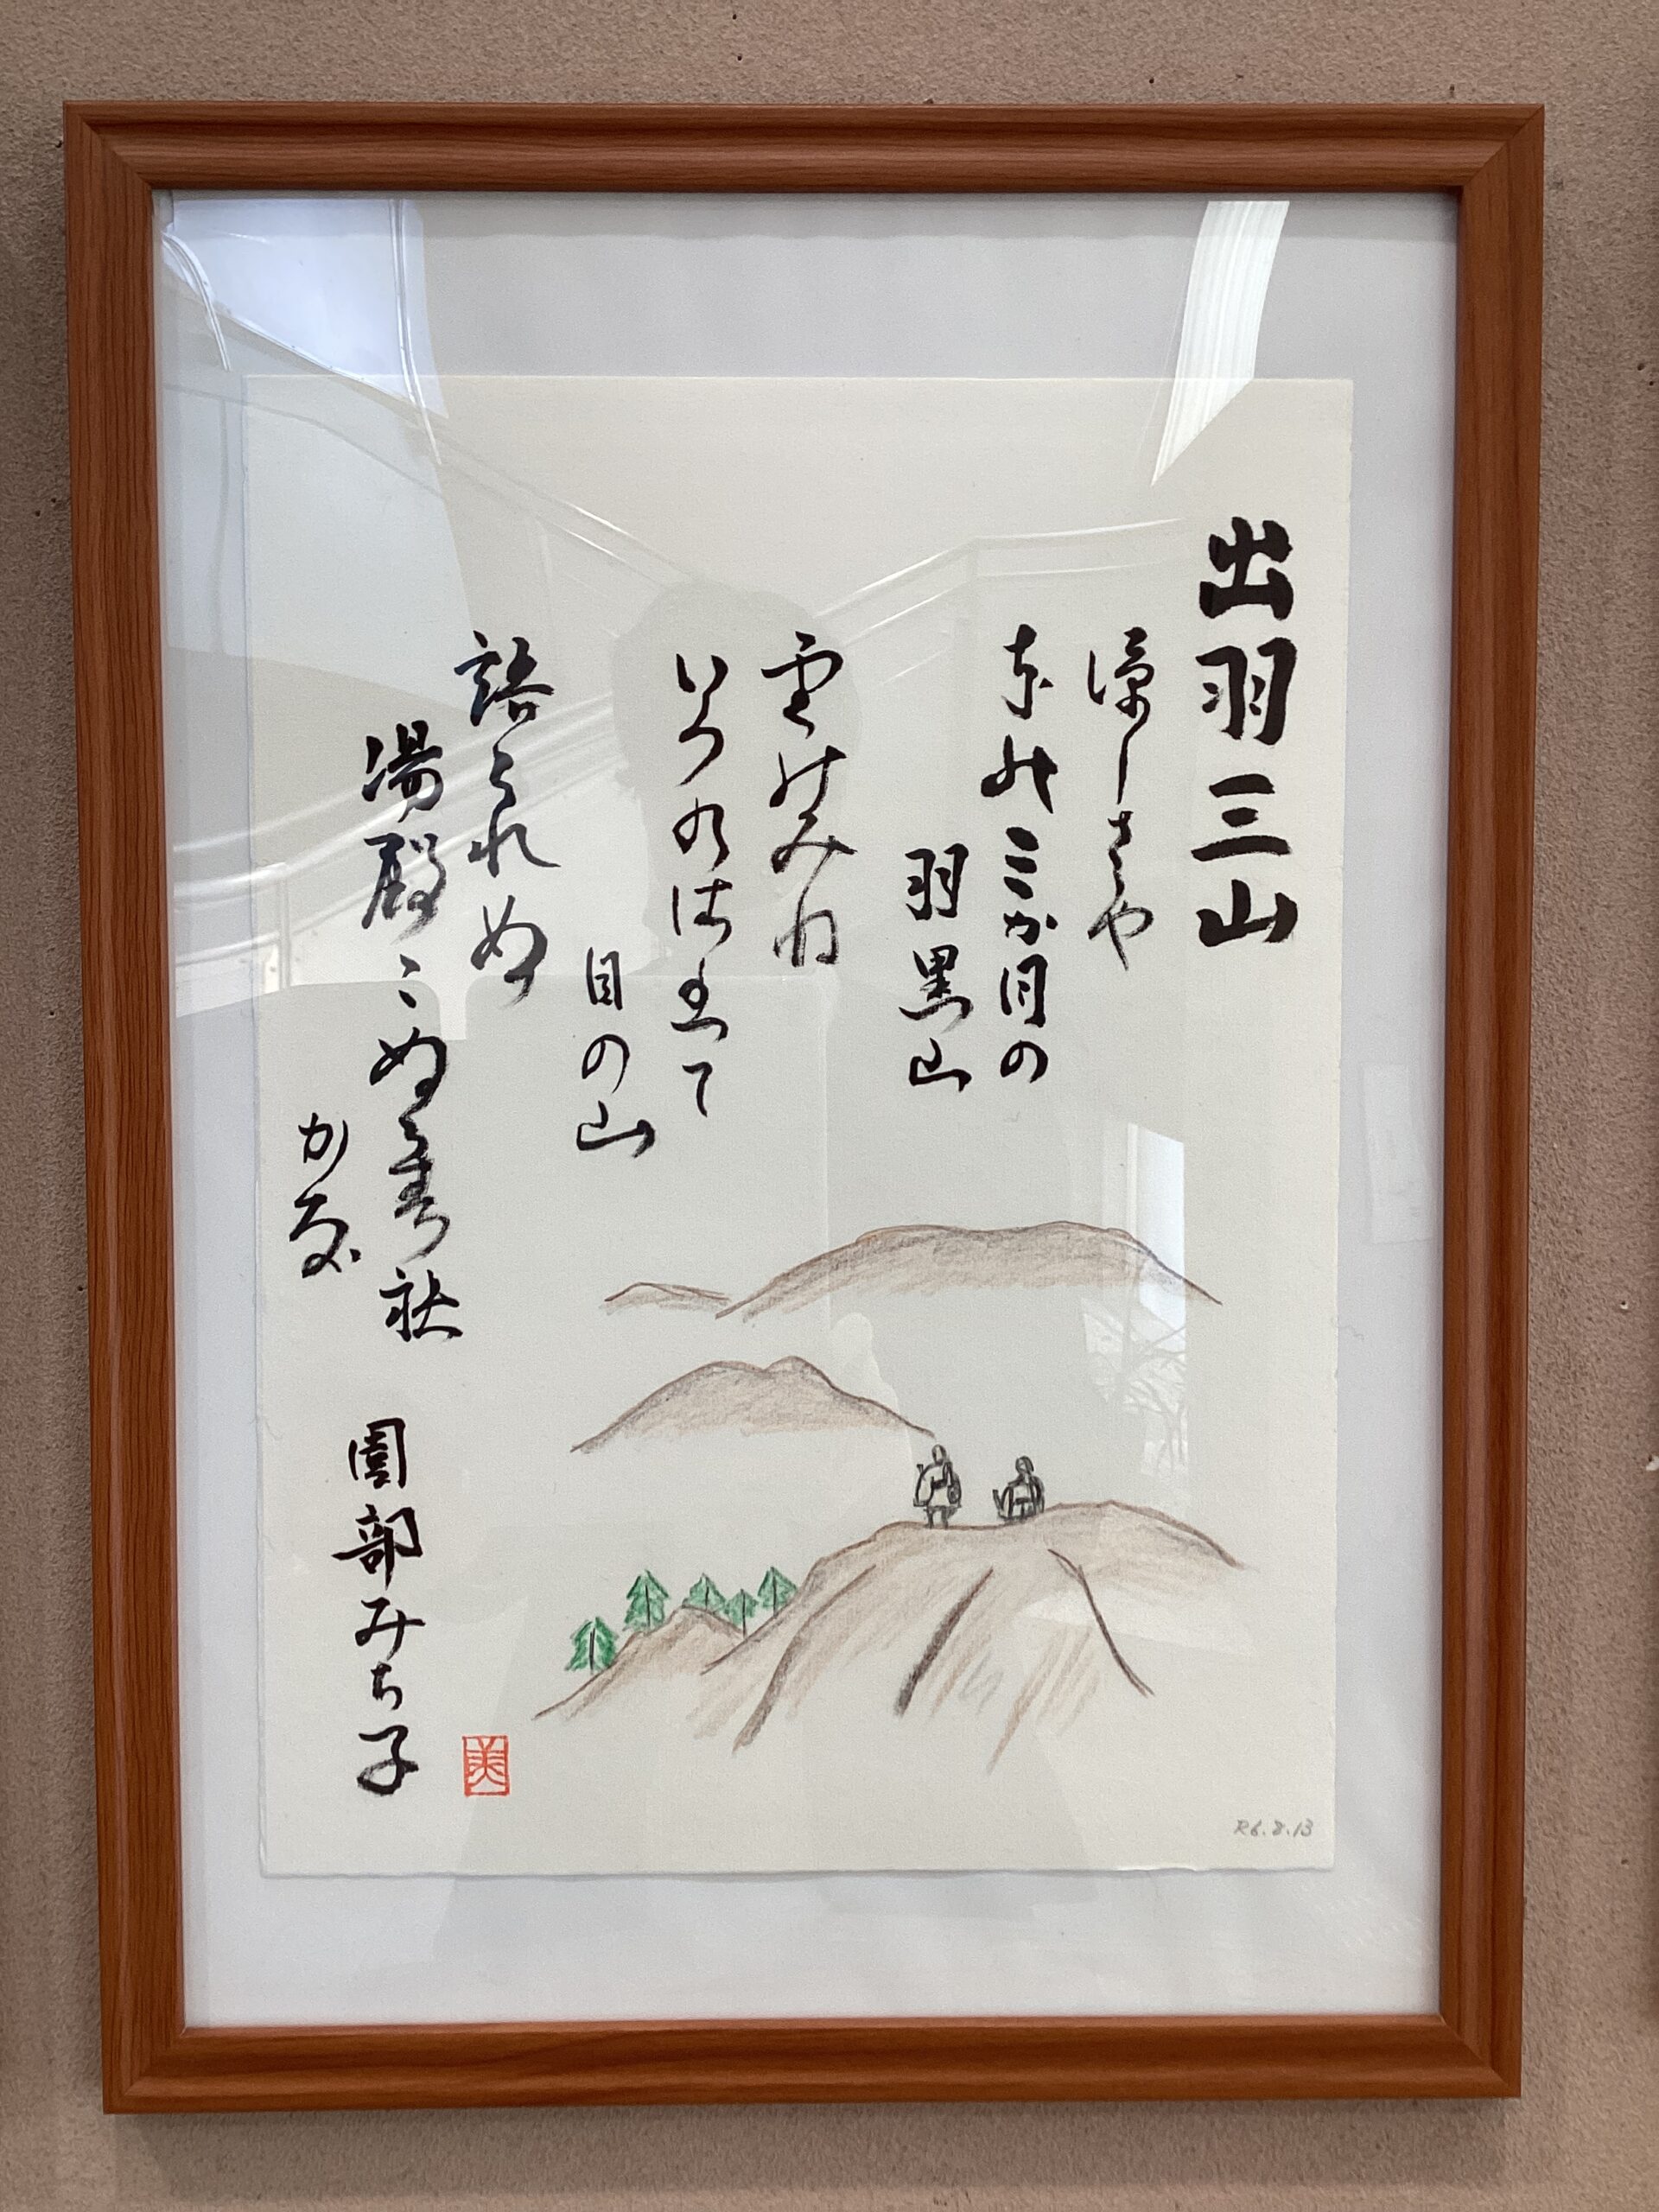 出羽三山
涼しさや
ほの三か月の
羽黒山
雲のみね
いくつ
月の山
語られぬ
湯殿にぬらす袂
かな
園部みち子
美
R6.8.13